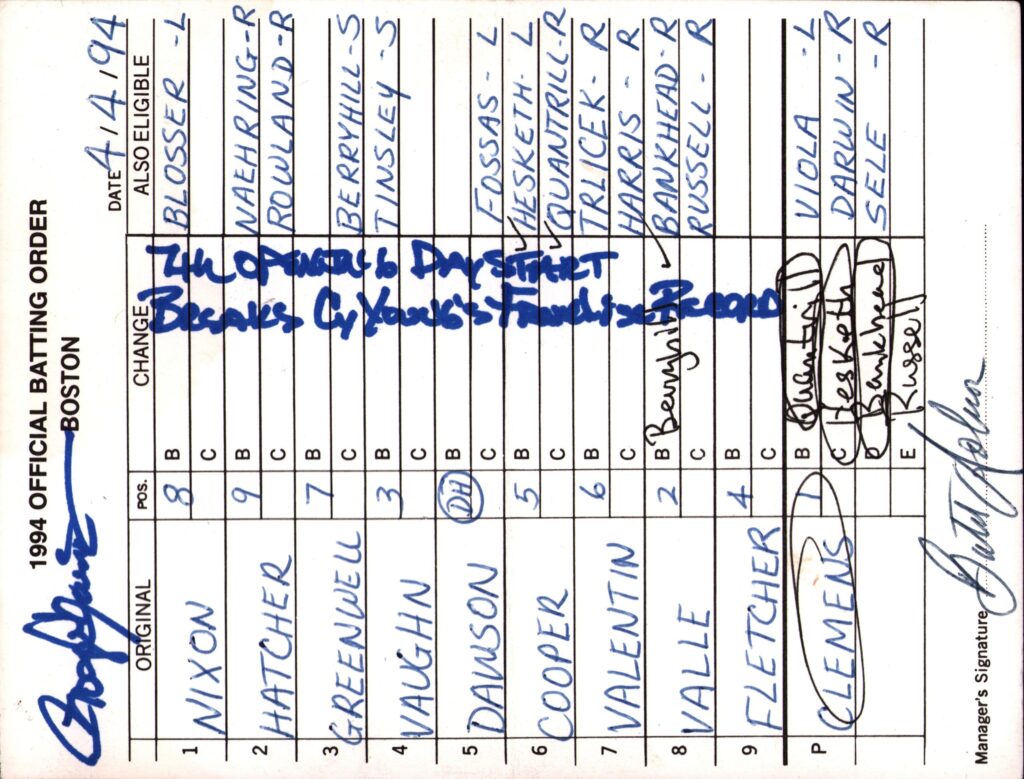 1994 OFFICIAL BATTING ORDER
BOSTON
DATE 4/4/94
ORIGINAL POS. CHANGE ALSO ELIGIBLE
1 NIXON 8 B BLOSSER - L
C
2 HATCHER 9 B NAEHRING-R
C ROWLAND-R
3 GREENWELL 7 B
C BERRYHILL-S
4 VAUGHN 3 B TINSLEY - S
C
5 DAWSON DH B
C FOSSAS - L
6 COOPER 5 B ✓ HESKETH - L
C ✓ QUANTRILL-R
7 VALENTIN 6 B TRLICEK - R
C HARRIS - R
8 VALLE 2 B Berryhill ✓ BANKHEAD-R
C RUSSELL - R
9 FLETCHER 4 B
C
P CLEMENS 1 B Quantrill VIOLA - L
C Hesketh DARWIN - R
D Bankhead SELE - R
E Russell
7th OPENING DAY START
BREAKS Cy Young's Franchise Record
Manager's Signature Butch Hobson